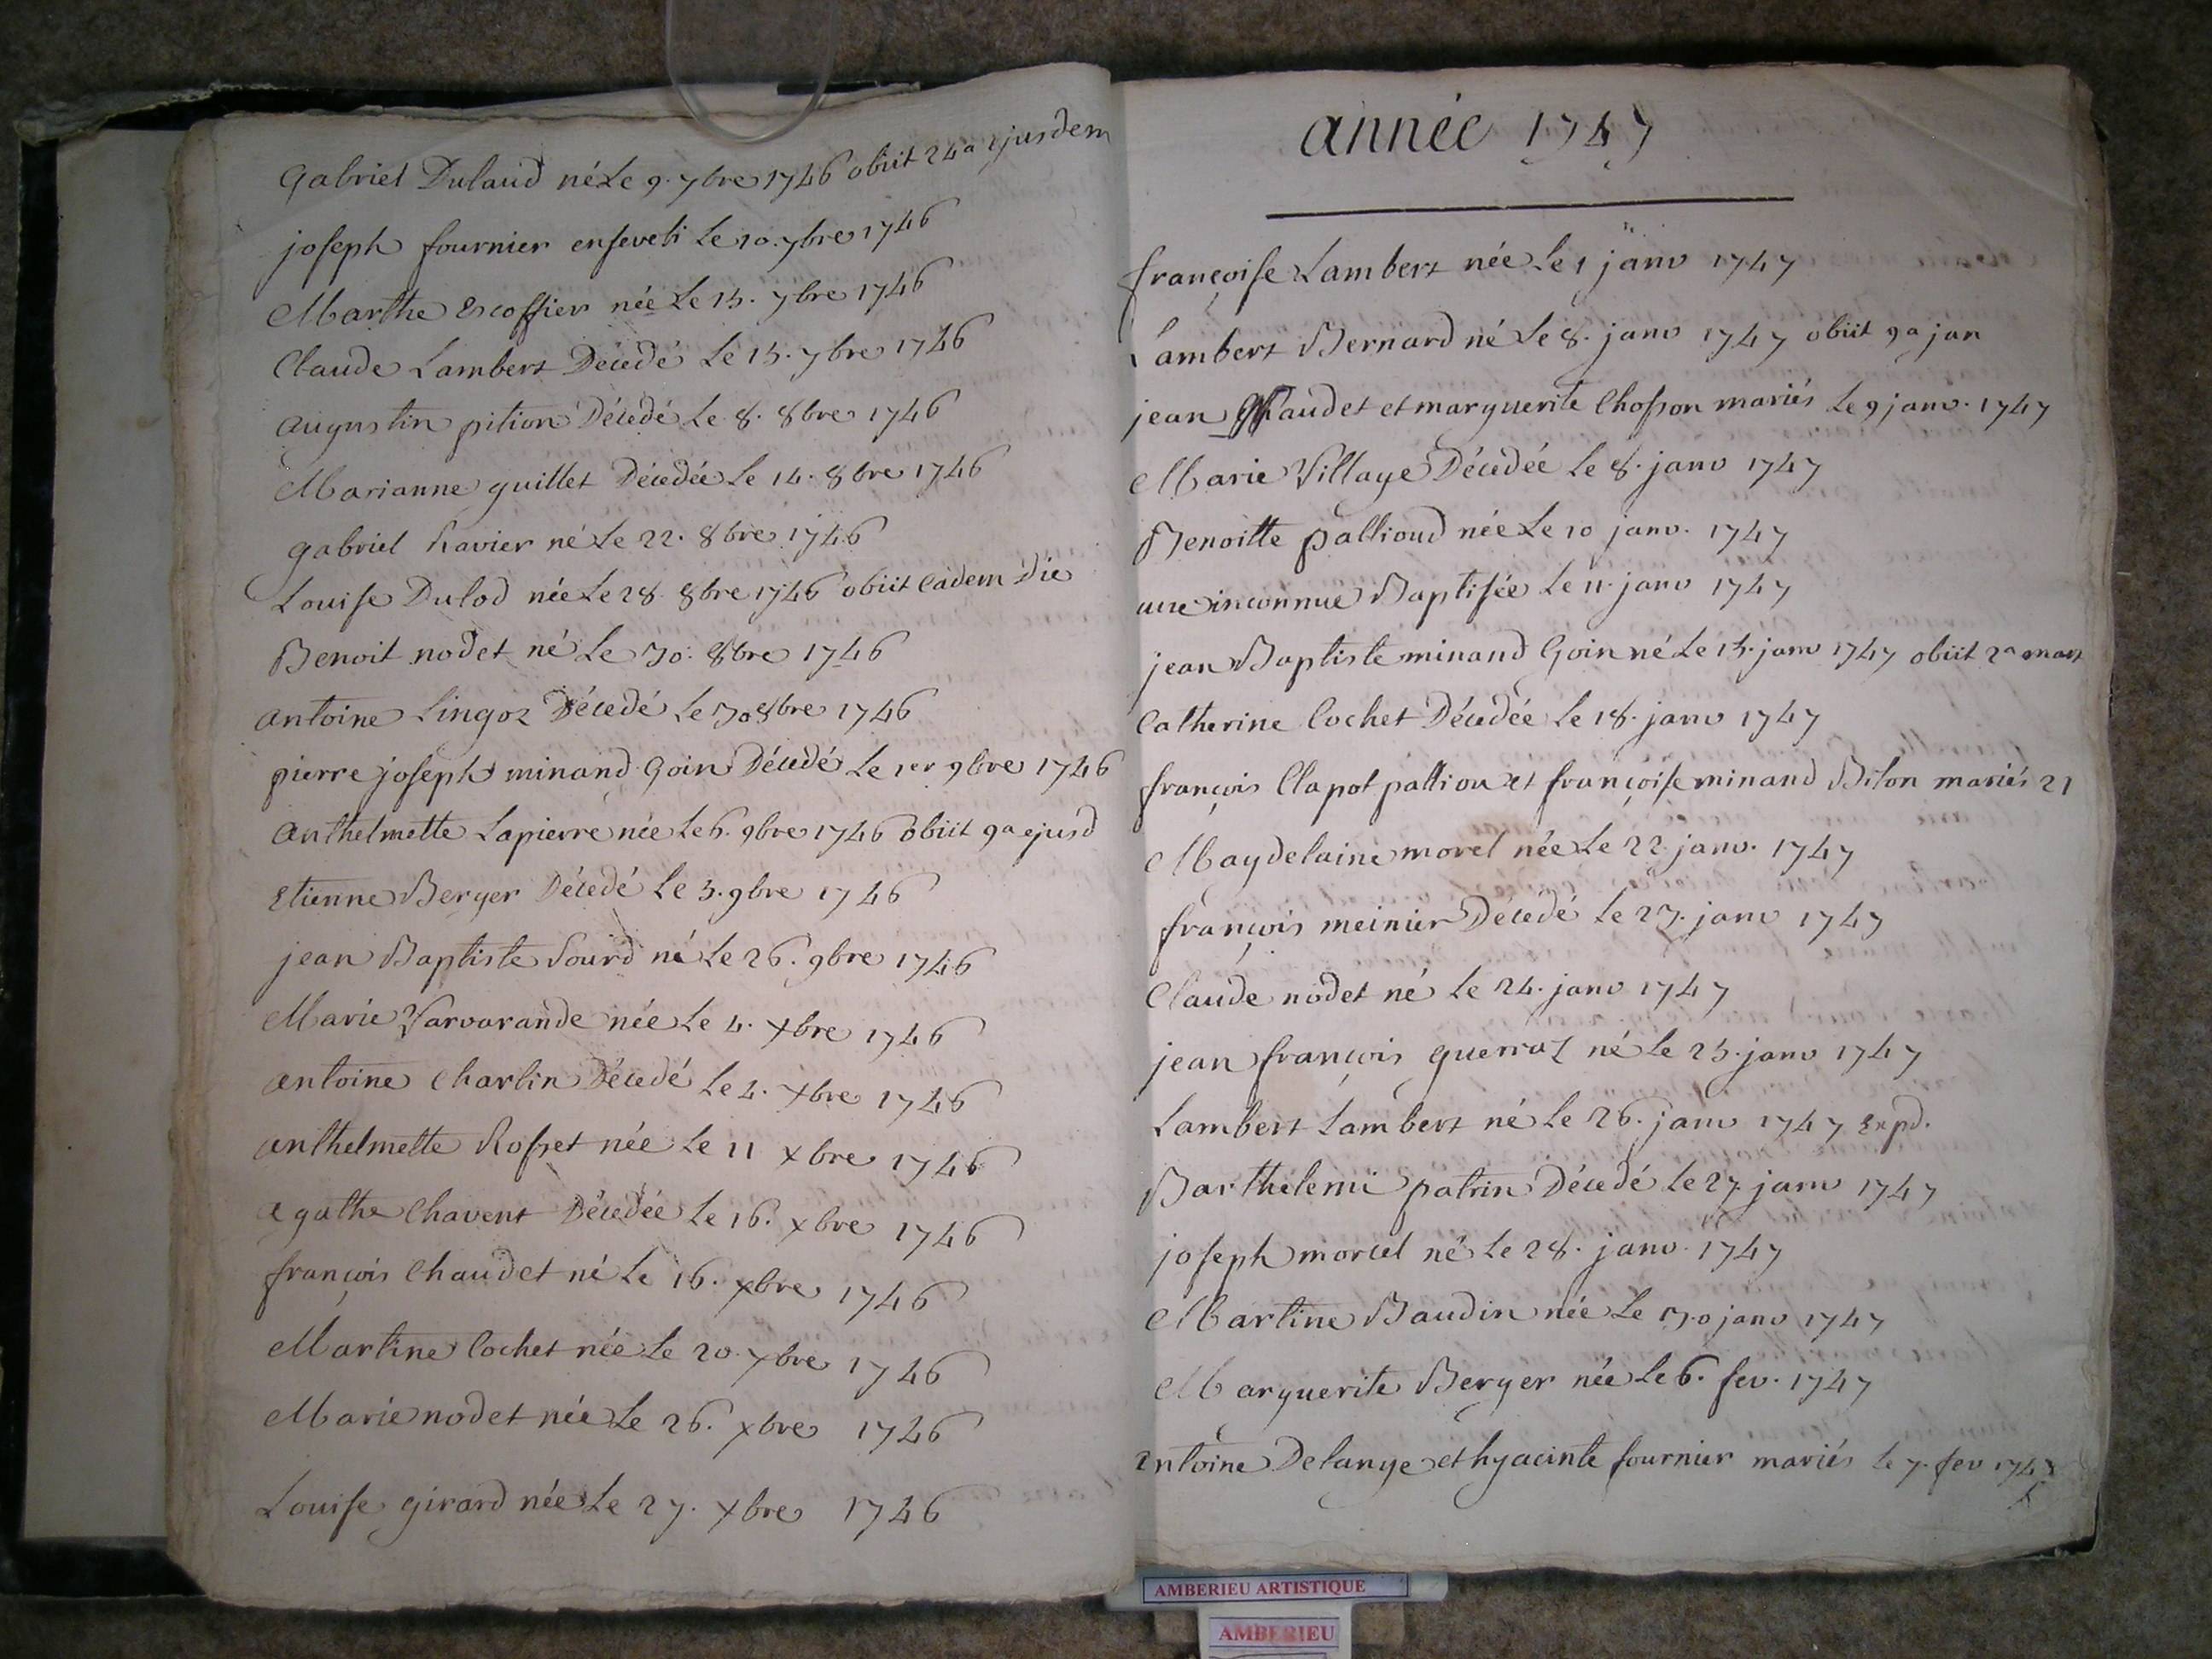 Gabriel Dulaud né Le 9. 7bre 1746 obiit 24a ejusdem
joseph fournier enseveli Le 10. 7bre 1746
Marthe Escoffier née Le 15. 7bre 1746
Claude Lambert Décedé Le 15. 7bre 1746
augustin pition Décedé Le 8. 8bre 1746
Marianne guillet Décedée Le 14. 8bre 1746
gabriel Ravier né Le 22. 8bre 1746
Louise Dulod née Le 28. 8bre 1746 obiit Eadem die
Benoit nodet né Le 30. 8bre 1746
antoine Lingoz Décedé Le 30 8bre 1746
pierre joseph minand Goin Décedé Le 1er 9bre 1746
anthelmette Lapierre née Le 6. 9bre 1746 obiit 9a ejusd
Etienne Berger Décedé Le 5. 9bre 1746
jean Baptiste Sourd né Le 26. 9bre 1746
Marie Varvarande née Le 4. Xbre 1746
antoine Charlin Décedé Le 4. Xbre 1746
anthelmette Rosset née Le 11 Xbre 1746
agathe Chavent Décedée Le 16. Xbre 1746
françois Chaudet né Le 16. Xbre 1746
Martine Cochet née Le 20. Xbre 1746
Marie nodet née Le 26. Xbre 1746
Louise girard née Le 27. Xbre 1746
année 1747
françoise Lambert née Le 1 janv 1747
Lambert Bernard né Le 8. janv 1747 obiit 9a jan
jean et marguerite Chosson mariés Le 9 janv. 1747
Marie Village Décedée Le 8. janv 1747
Benoitte pallioud née Le 10 janv. 1747
une inconnue Baptisée Le 11. janv 1747
jean Baptiste minand Goin né Le 15. janv 1747 obiit 2a mart
Catherine Cochet Décedée Le 18. janv 1747
françois Clapot palliou et françoise minand Bilon mariés 21
Magdelaine morel née Le 22. janv. 1747
françois meinier Décedé Le 23. janv 1747
Claude nodet né Le 24. janv 1747
jean françois guerraz né Le 25. janv 1747
Lambert Lambert né Le 26. janv 1747 Expd.
Barthelemi patrin Décedé Le 27 janv 1747
joseph morcel né Le 28. janv. 1747
Martine Baudin née Le 30 janv 1747
Marguerite Berger née Le 6. fev. 1747
antoine Delange et hyacinte fournier mariés Le 7. fev 1747
AMBERIEU ARTISTIQUE
AMBERIEU